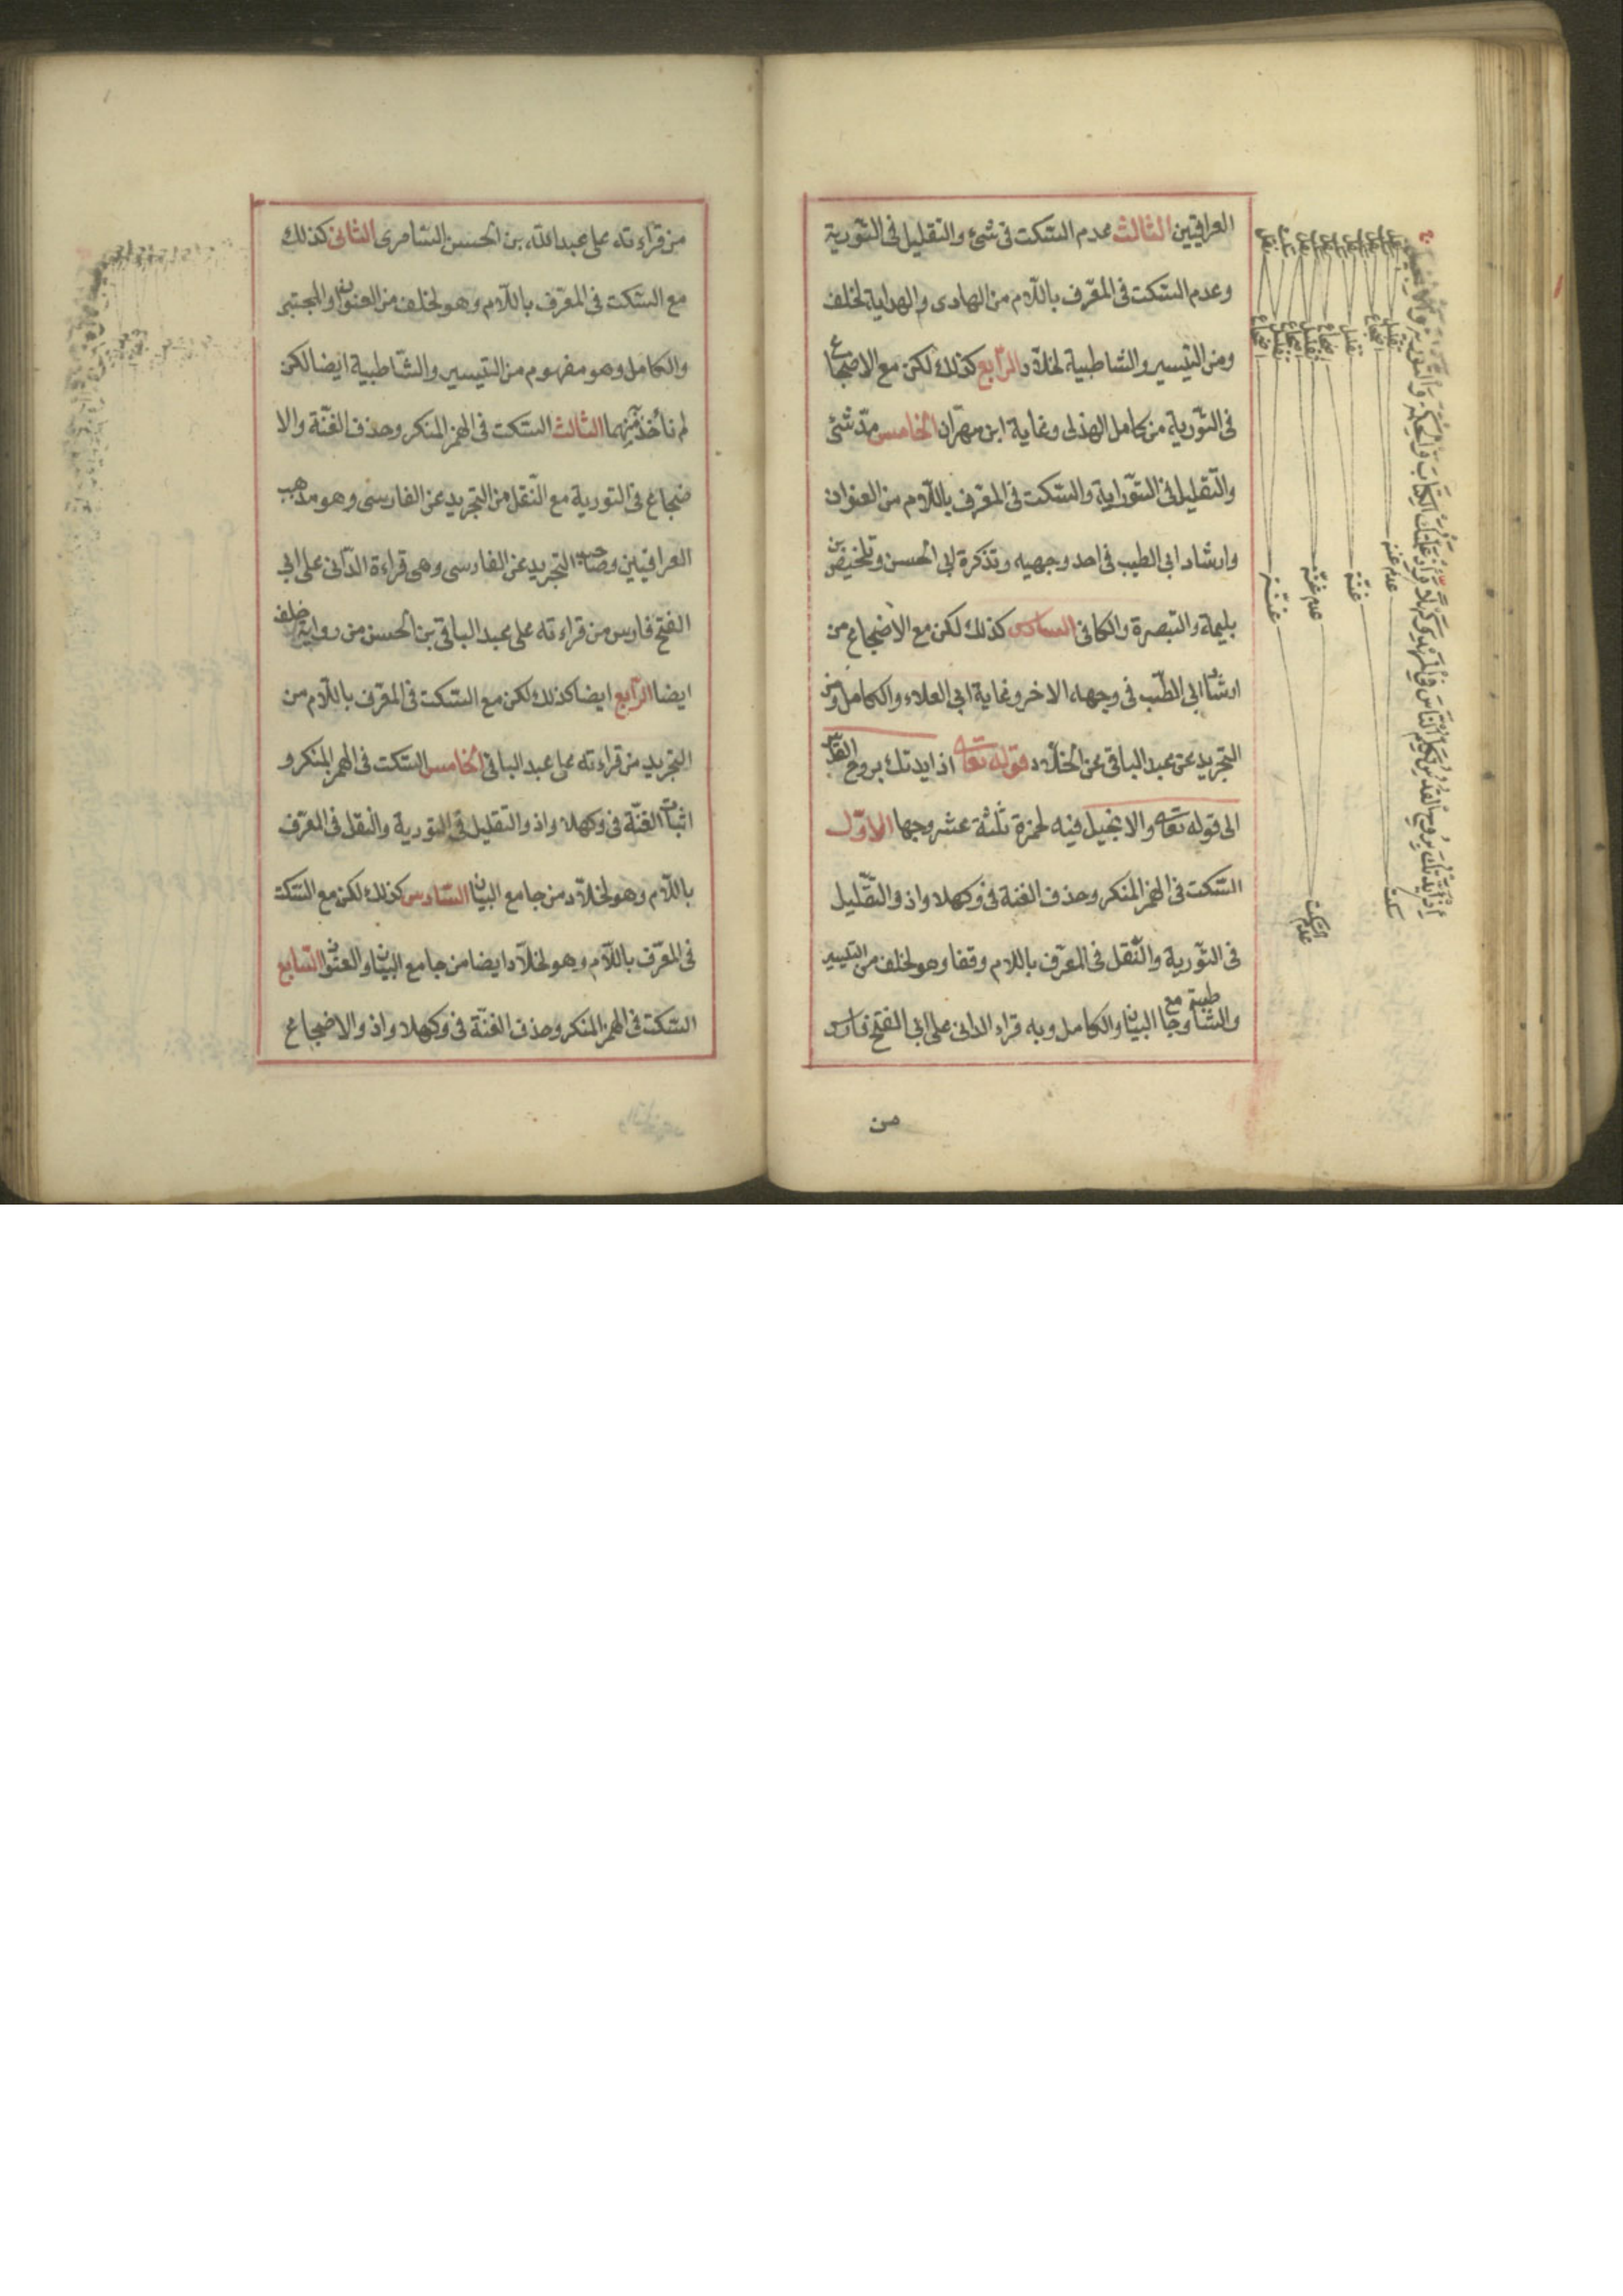 العراقيين الثالث عدم السّكت فى شئ والتقليل فى التّورية
وعدم السّكت فى المعّرف باللّام من الهادى والهداية لخلف
ومن التيسير والشاطبية لخلّاد الرّابع كذلك لكن مع الاضجاع
فى التّورية من كامل الهذلى وغاية ابن مهران الخامس مدّ شئ
والتّقليل فى التّوراية والسّكت فى المعّرف باللّام من العنوان
وارشاد ابى الطيب فى احد وجهيه وتذكرة ابى الحسن وتلخيص بن
بليمة والتبصرة والكافى السادس كذلك لكن مع الاضجاع من
ارشاد ابى الطّيب فى وجهه الاخر وغاية ابى العلاء والكامل ومن
التجريد عن عبد الباقى عن الخلّاد قوله تعالى اذ ايدتك بروح القدس
الى قوله تعالى والانجيل فيه لحمزة ثلثة عشر وجها الاوّل
السّكت فى الهمز المنكر وحذف الغنة فى وكهلا واذ والتّقليل
فى التّورية والنّقل فى المعّرف باللام وقفا وهو لخلف من التيسير
والشاطبية وجامع البيان والكامل وبه قراء الدانى على ابى الفتح فارس
من
اذ ايّدتك بروح القدس تكلّم النّاس فى المهد وكهلا واذ علّمتك الكتاب والحكمة والتّورية والانجيل
سكت
عدم السّكت
عدم غنّه
غنّة
عدم غنّه
غنّة
من قراءته على عبد الله بن الحسن السّامرى الثانى كذلك
مع السّكت فى المعّرف باللّام وهو لخلف من العنوان والمجتبى
والكامل وهو مفهوم من التيسير والشّاطبية ايضا لكن
لم نأخذ منهما الثالث السّكت فى الهمز المنكر وحذف الغنّة والا
ضجاع فى التورية مع النّقل من التجريد عن الفارسى وهو مذهب
العراقيين وصاحب التجريد عن الفارسى وهى قراءة الدّانى على ابى
الفتح فارس من قراءته على عبد الباقى بن الحسن من رواية خلف
ايضا الرّابع ايضا كذلك لكن مع السّكت فى المعّرف باللّام من
التجريد من قراءته على عبد الباقى الخامس السّكت فى الهمز المنكر و
اثبات الغنّة فى وكهلا واذ والتقليل فى التورية والنقل فى المعّرف
باللّام وهو لخلّاد من جامع البيان السّادس كذلك لكن مع السّكت
فى المعّرف باللّام وهو لخلّاد ايضا من جامع البيان والعنوان السّابع
السّكت فى الهمز المنكر وحذف الغنّة فى وكهلا واذ والاضجاع